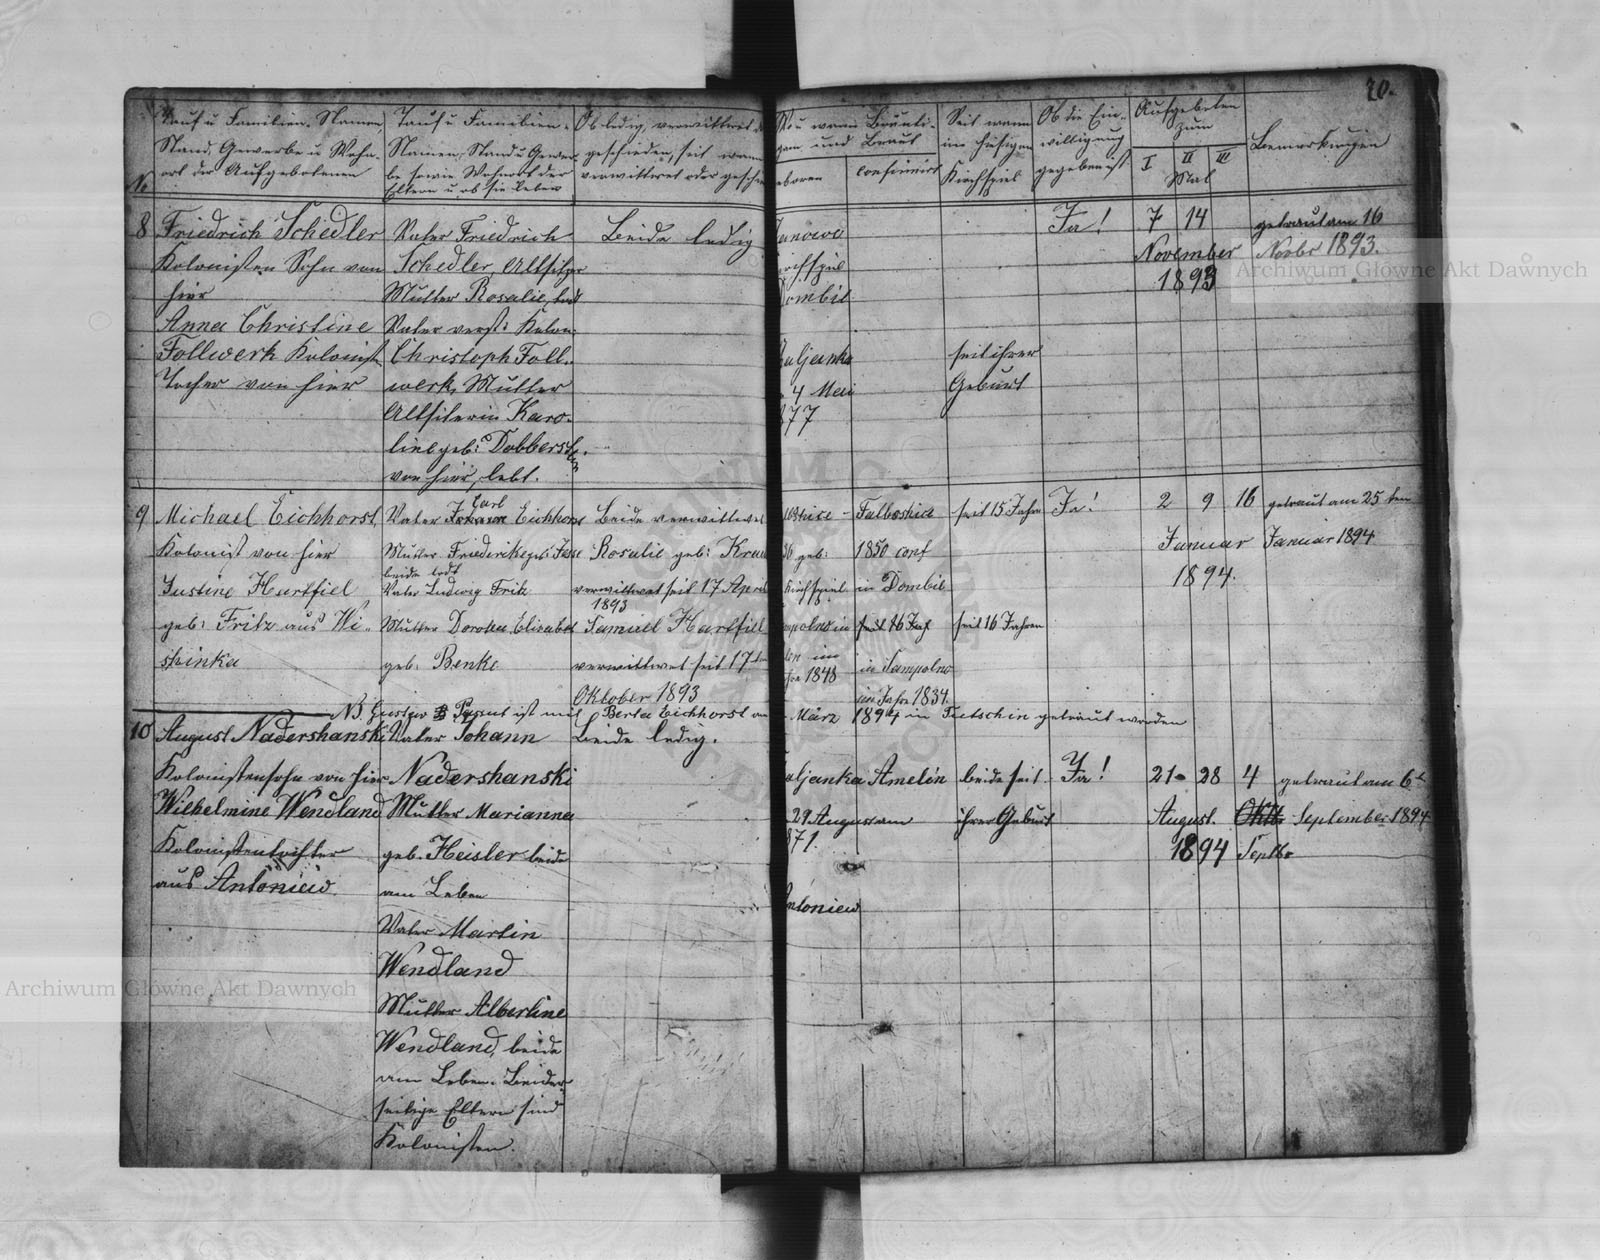 20.
No
Tauf u Familien-Namen,
Stand, Gewerbe u Wohn-
ort der Aufgebotenen
Tauf u Familien-
Namen, Stand u Gewer
be sowie Wohnort der
Eltern u ob sie leben
Ob ledig, verwittwet
geschieden, seit wann
verwittwet oder geschie
wann Bräuti-
gam und Braut
eboren
confirmirt
Seit wann
im hiesigen
Kirchspiel
Ob die Ein-
willigung
gegeben ist
Aufgeboten
zum
I II III
Mal
Bemerkungen
8
Friedrich Schedler
Kolonisten Sohn von
hier
Anna Christine
Follwerk Kolonist
Tochter von hier
Vater Friedrich
Schedler, Altsitzer
Mutter Rosalie, tod
Vater verst: Kolon:
Christoph Foll-
werk, Mutter
Altsiterin Karo-
line geb: Dobberstein
von hier, lebt.
Beide ledig
Janowa
irchspiel
Dombie
uljanka
4 Mai
877
seit ihrer
Geburt
Ja!
7 14
November
1893
getraut am 16
Novbr 1893.
9
Michael Eichhorst,
Kolonist von hier
Justine Hartfiel
geb: Fritz aus Wi-
shinka
Carl
Vater Eichhorst
Mutter Friederike geb: Jesse
beide todt
Vater Ludwig Fritz
Mutter Dorotea Elisabet
geb: Benke
Beide verwittwet
Rosalie geb: Krau
verwittwet seit 17 April
1893
Samuel Hartfiell
verwittwet seit 17ten
Oktober 1893
36 geb:
Kirchspiel
mpolno in
im
1848
Falboshice
1850 conf
in Dombie
in Sampolno
im Jahre 1834.
seit 15 Jahre
seit 16 Jahren
Ja!
2 9 16
Januar
1894.
getraut am 25ten
Januar 1894
NB. Gustav Parent ist mit Berta Eichhorst am
März 1894 in Tutschin getraut worden
10
August Nadershanski
Kolonistensohn von hier
Wilhelmine Wendland
Kolonistentochter
aus Antoniew.
Vater Johann
Nadershanski
Mutter Marianna
geb. Heisler beide
am Leben
Vater Martin
Wendland
Mutter Albertine
Wendland, beide
am Leben. Beider-
seitige Eltern sind
Kolonisten.
Beide ledig.
uljanka
29 August
871.
ntoniew
Amelin
am
beide seit
ihrer Geburt
Ja!
21 28 4
August. Oktb
1894 Septbr
getraut am 6t
September 1894
Archiwum Główne Akt Dawnych
Archiwum Główne Akt Dawnych